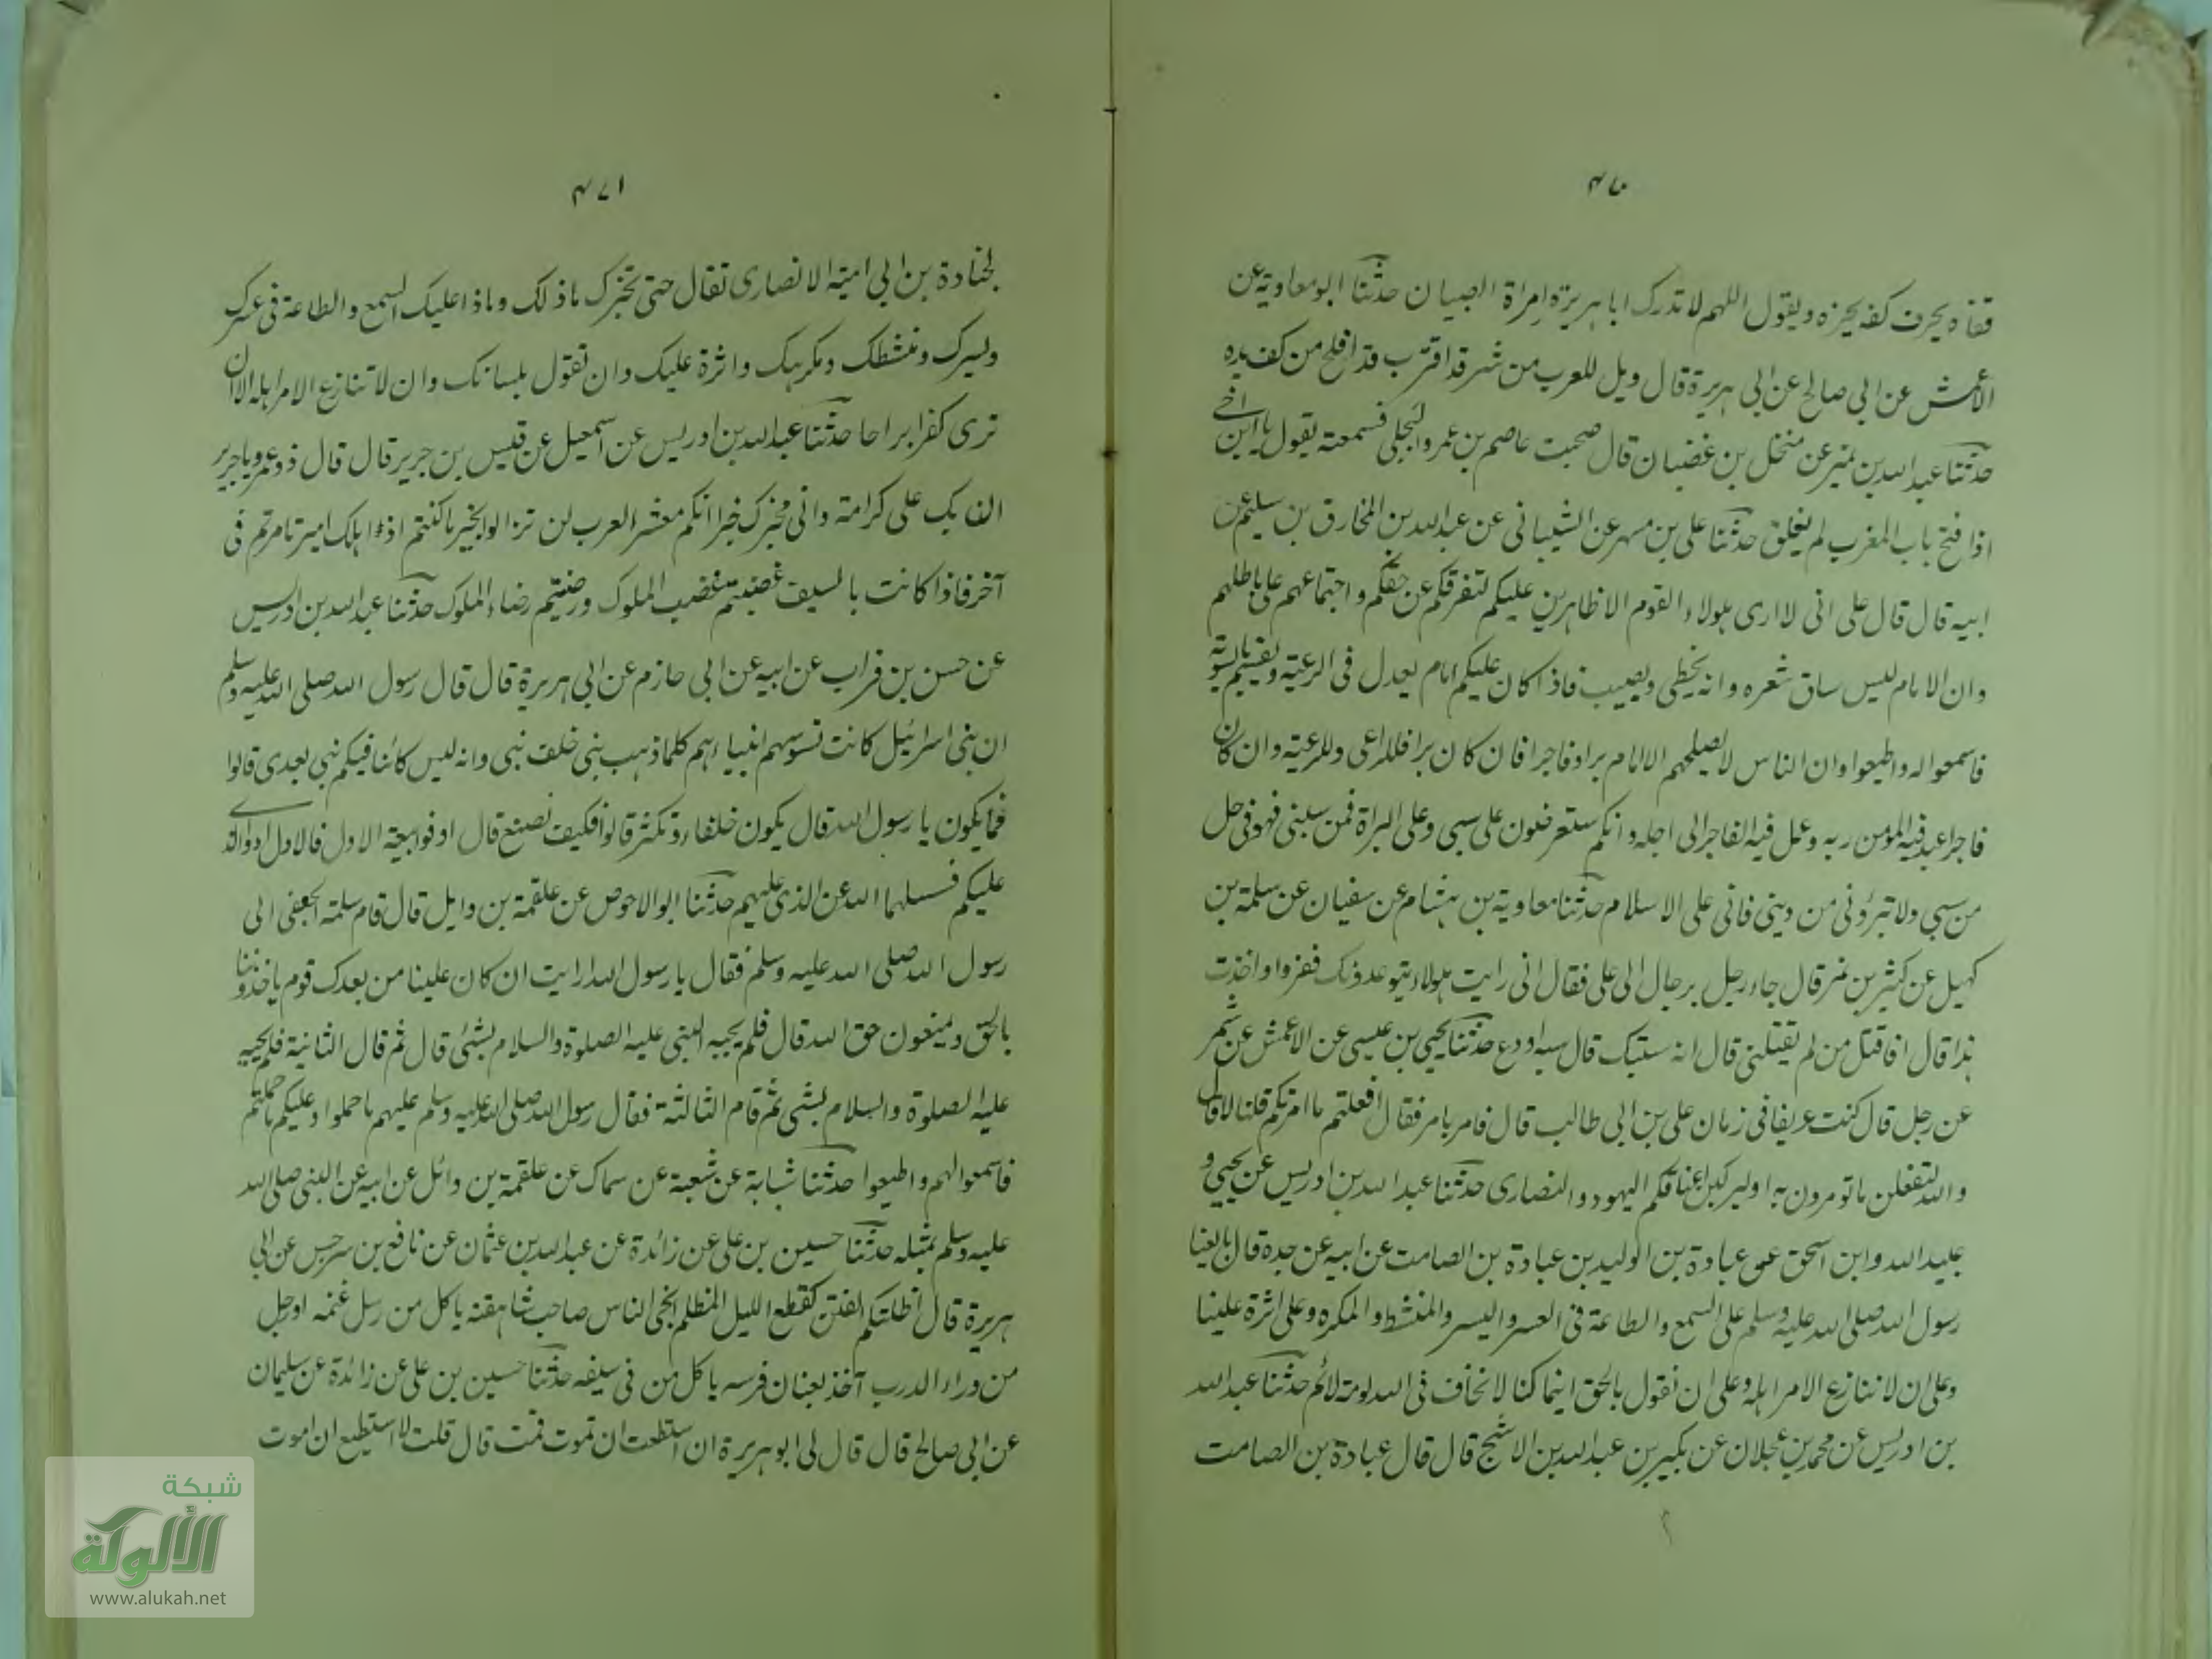 ٤٧٠
قفاه بحرف كفه يحزه ويقول اللهم لا تدرك ابا هريرة امراة الصبيان حدثنا ابو معاوية عن
الأعمش عن ابي صالح عن ابي هريرة قال ويل للعرب من شر قد اقترب قد افلح من كف يده
حدثنا عبد الله بن نمير عن منخل بن غضبان قال صحبت عاصم بن عمرو البجلي فسمعته يقول يا ابن اخي
اذا فتح باب المغرب لم يغلق حدثنا علي بن مسهر عن الشيباني عن عبد الله بن المخارق بن سليم عن
ابيه قال قال علي اني لا ارى هولاء القوم الا ظاهرين عليكم لتفرقكم عن حقكم واجتماعهم على باطلهم
وان الامام ليس ساق شعره وانه يخطي ويصيب فاذا كان عليكم امام يعدل في الرعية ويقسم بالسوية
فاسمعوا له واطيعوا وان الناس لا يصلحهم الا امام برا وفاجرا فان كان برا فللراعي وللرعية وان كان
فاجرا عبد فيه المؤمن ربه وعمل فيه الفاجر الى اجله وانكم ستعرضون على سبي وعلى البراة فمن سبني فهو في حل
من سبي ولا تبرؤني من ديني فاني على الاسلام حدثنا معاوية بن هشام عن سفيان عن سلمة بن
كهيل عن كثير بن نمر قال جاء رجل برجال الى علي فقال اني رايت هولاء يتوعدونك ففروا واخذت
هذا قال افاقتل من لم يقتلني قال انه سبك قال سبه او دع حدثنا يحيى بن عيسى عن الاعمش عن شمر
عن رجل قال كنت عريفا في زمان علي بن ابي طالب قال فامر بامر فقال افعلتم ما امرتكم قلنا لا قال
والله لتفعلن ما تومرون به او ليركبن اعناقكم اليهود والنصارى حدثنا عبد الله بن ادريس عن يحيى و
عبيد الله وابن اسحق عن عبادة بن الوليد بن عبادة بن الصامت عن ابيه عن جده قال بايعنا
رسول الله صلى الله عليه وسلم على السمع والطاعة في العسر واليسر والمنشط والمكره وعلى اثرة علينا
وعلى ان لا ننازع الامر اهله وعلى ان نقول بالحق اينما كنا لا نخاف في الله لومة لائم حدثنا عبد الله
بن ادريس عن محمد بن عجلان عن بكير بن عبد الله بن الاشج قال قال عبادة بن الصامت
٤٧١
لجنادة بن ابي امية الانصاري تقال حتى تخبرك ماذ لك وماذا عليك السمع والطاعة في عسرك
ويسرك ومنشطك ومكرهك واثرة عليك وان تقول بلسانك وان لا تنازع الامر اهله الا ان
ترى كفرا براحا حدثنا عبد الله بن ادريس عن اسمعيل عن قيس بن جرير قال قال ذو عمرو يا جرير
ان بك على كرامة واني مخبرك خبرا انكم معشر العرب لن تزالوا بخير ما كنتم اذا هلك امير تامرتم في
آخر فاذا كانت بالسيف غضبتم غضب الملوك ورضيتم رضاء الملوك حدثنا عبد الله بن ادريس
عن حسن بن فرات عن ابيه عن ابي حازم عن ابي هريرة قال قال رسول الله صلى الله عليه وسلم
ان بني اسرائيل كانت تسوسهم انبياءهم كلما ذهب نبي خلف نبي وانه ليس كائنا فيكم نبي بعدي قالوا
فما يكون يا رسول الله قال يكون خلفاء وتكثر قالوا فكيف نصنع قال اوفوا بيعة الاول فالاول ادوا الذي
عليكم فسيسلهم الله عن الذي عليهم حدثنا ابو الاحوص عن علقمة بن وايل قال قام سلمة الجعفي الى
رسول الله صلى الله عليه وسلم فقال يا رسول الله ارايت ان كان علينا من بعدك قوم ياخذوننا
بالحق ويمنعون حق الله قال فلم يجبه النبي عليه الصلوة والسلام بشئ قال ثم قال الثانية فلم يجبه
عليه الصلوة والسلام بشئ ثم قام الثالثة فقال رسول الله صلى الله عليه وسلم عليهم ما حملوا وعليكم ما حملتم
فاسمعوا لهم واطيعوا حدثنا شبابة عن شعبة عن سماك عن علقمة بن وائل عن ابيه عن النبي صلى الله
عليه وسلم بمثله حدثنا حسين بن علي عن زائدة عن عبد الله بن عثمان عن نافع بن سرجس عن ابي
هريرة قال اظلتكم الفتن كقطع الليل المظلم انجى الناس صاحب شاهقة ياكل من رسل غنمه او رجل
من وراء الدرب آخذ بعنان فرسه ياكل من في سيفه حدثنا حسين بن علي عن زائدة عن سليمان
عن ابي صالح قال قال لي ابو هريرة ان استطعت ان تموت فمت قال قلت لا استطيع ان اموت
شبكة
الألوكة
www.alukah.net